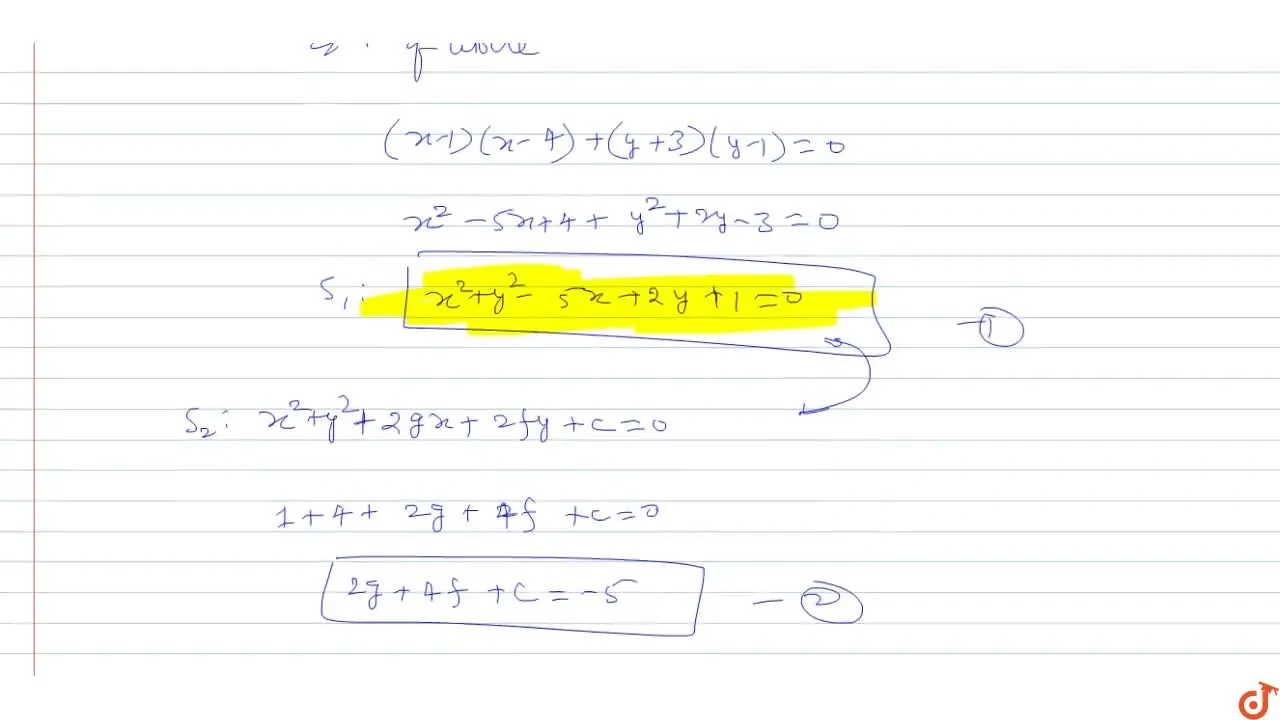 (x-1)(x-4)+(y+3)(y-1)=0
x²-5x+4+y²+2y-3=0
S₁: x²+y²-5x+2y+1=0 -①
S₂: x²+y²+2gx+2fy+c=0
1+4+2g+4f+c=0
2g+4f+c=-5 -②